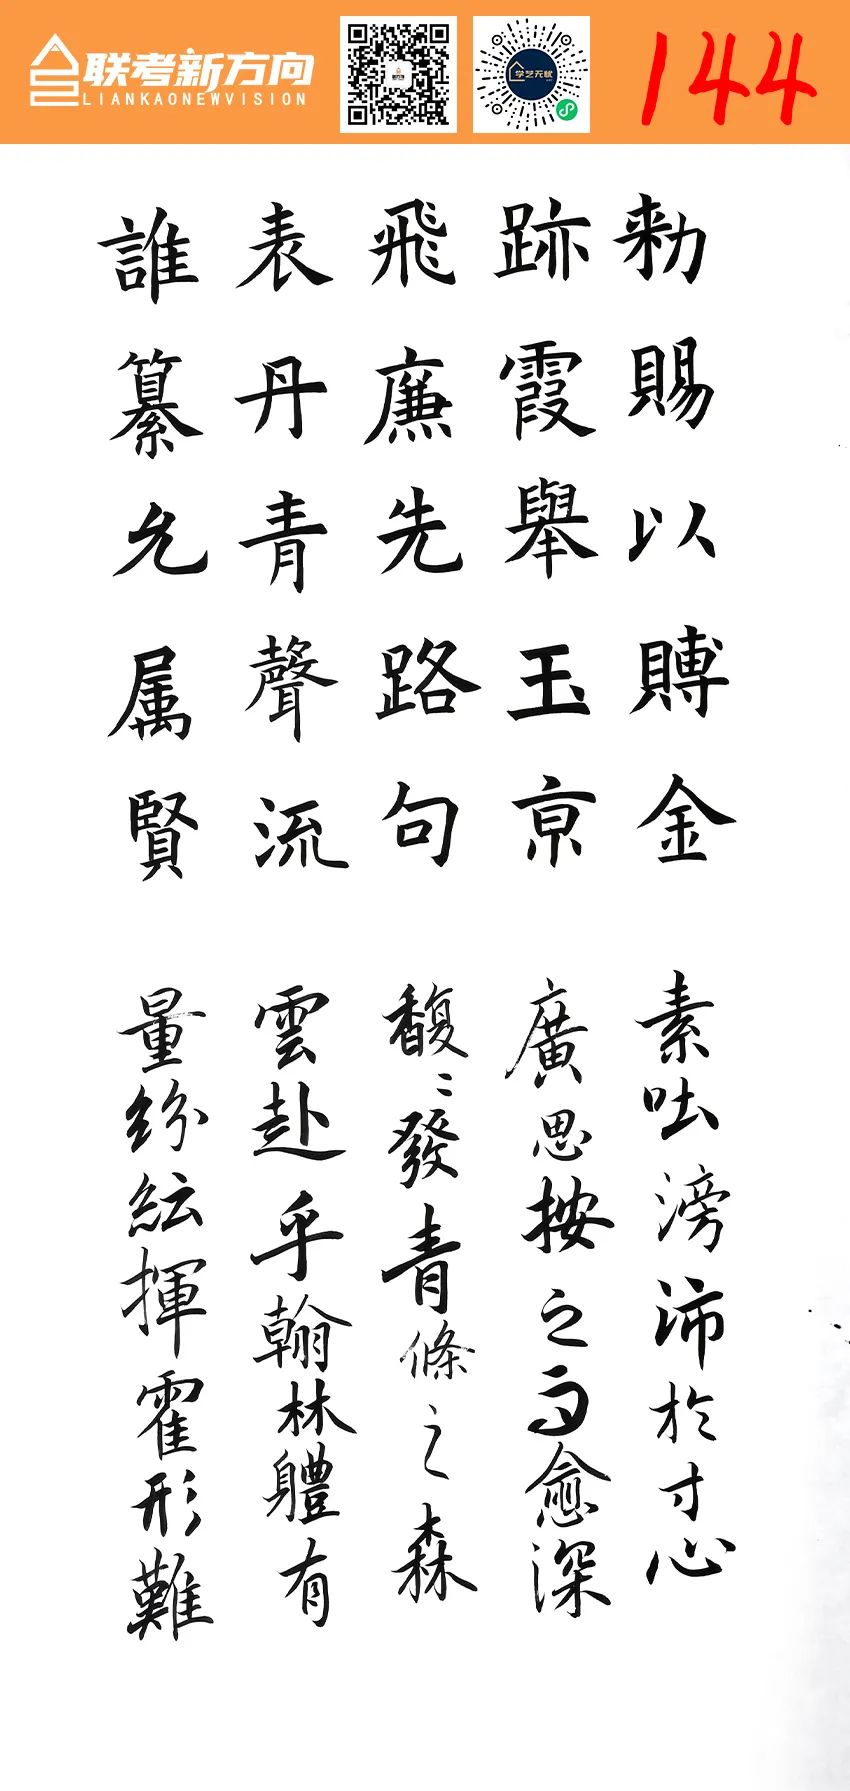 联考新方向
LIANKAONEWVISION
学艺无忧
144
勅賜以賻金
跡霞舉玉京
飛廉先路句
表丹青聲流
誰纂允属賢
素吐滂沛於寸心
廣思按之而愈深
馥〻發青條之森
雲赴乎翰林體有
量紛紜揮霍形難